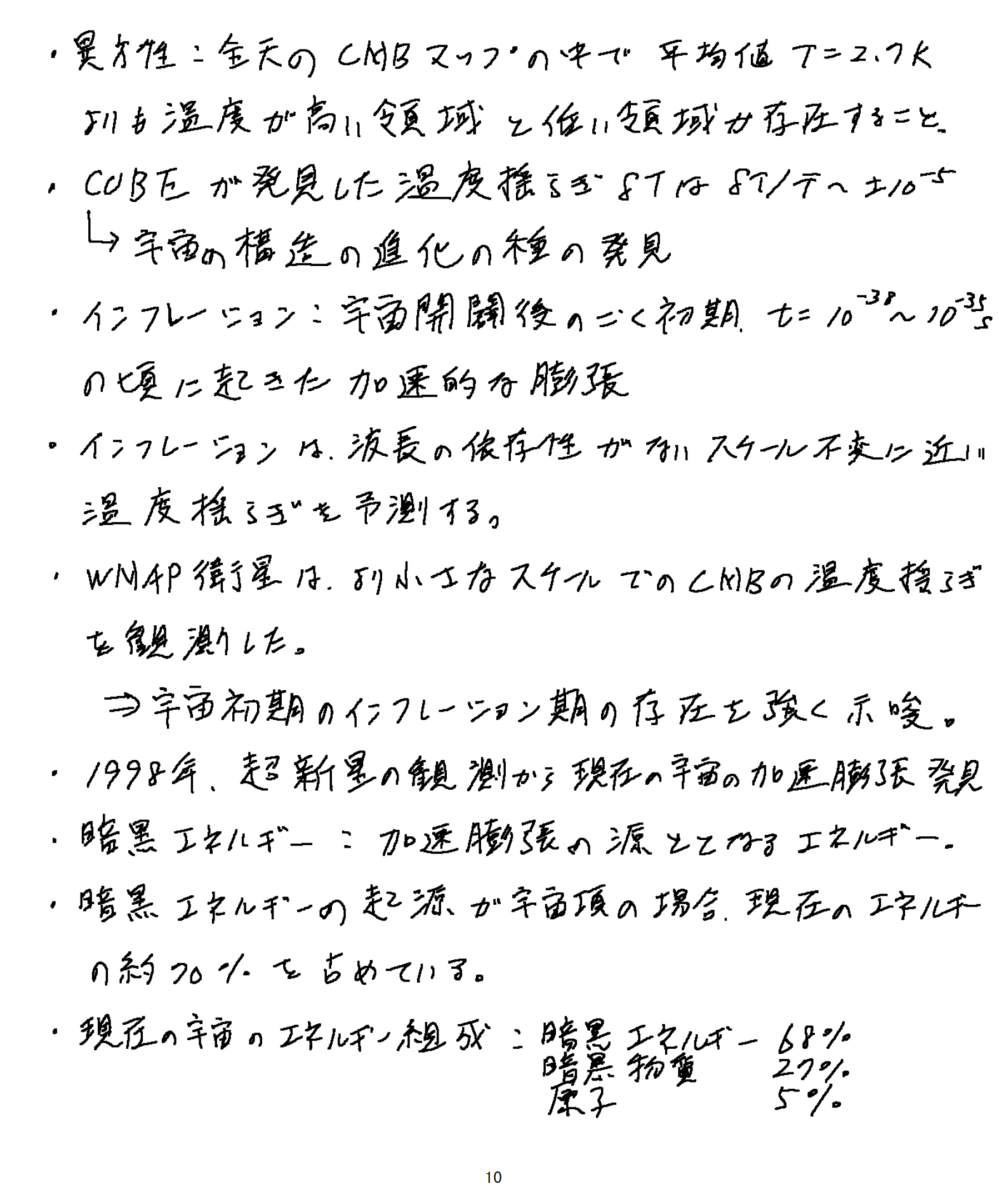 ・異方性：全天のCMBマップの中で 平均値 T=2.7K
よりも温度が高い領域と低い領域が存在すること.
・COBE が発見した温度揺らぎ δTは δT/T～±10⁻⁵
↳ 宇宙の構造の進化の種の発見
・インフレーション：宇宙開闢後のごく初期. t=10⁻³⁸～10⁻³⁵s
の頃に起きた加速的な膨張
・インフレーションは.波長の依存性がないスケール不変に近い
温度揺らぎを予測する。
・WMAP衛星は.より小さなスケールでのCMBの温度揺らぎ
を観測した。
⇒宇宙初期のインフレーション期の存在を強く示唆。
・1998年.超新星の観測から現在の宇宙の加速膨張発見
・暗黒エネルギー：加速膨張の源ととなるエネルギー.
・暗黒エネルギーの起源が宇宙項の場合.現在のエネルギー
の約70%を占めている。
・現在の宇宙のエネルギー組成：暗黒エネルギー 68%
暗黒物質 27%
原子 5%
10